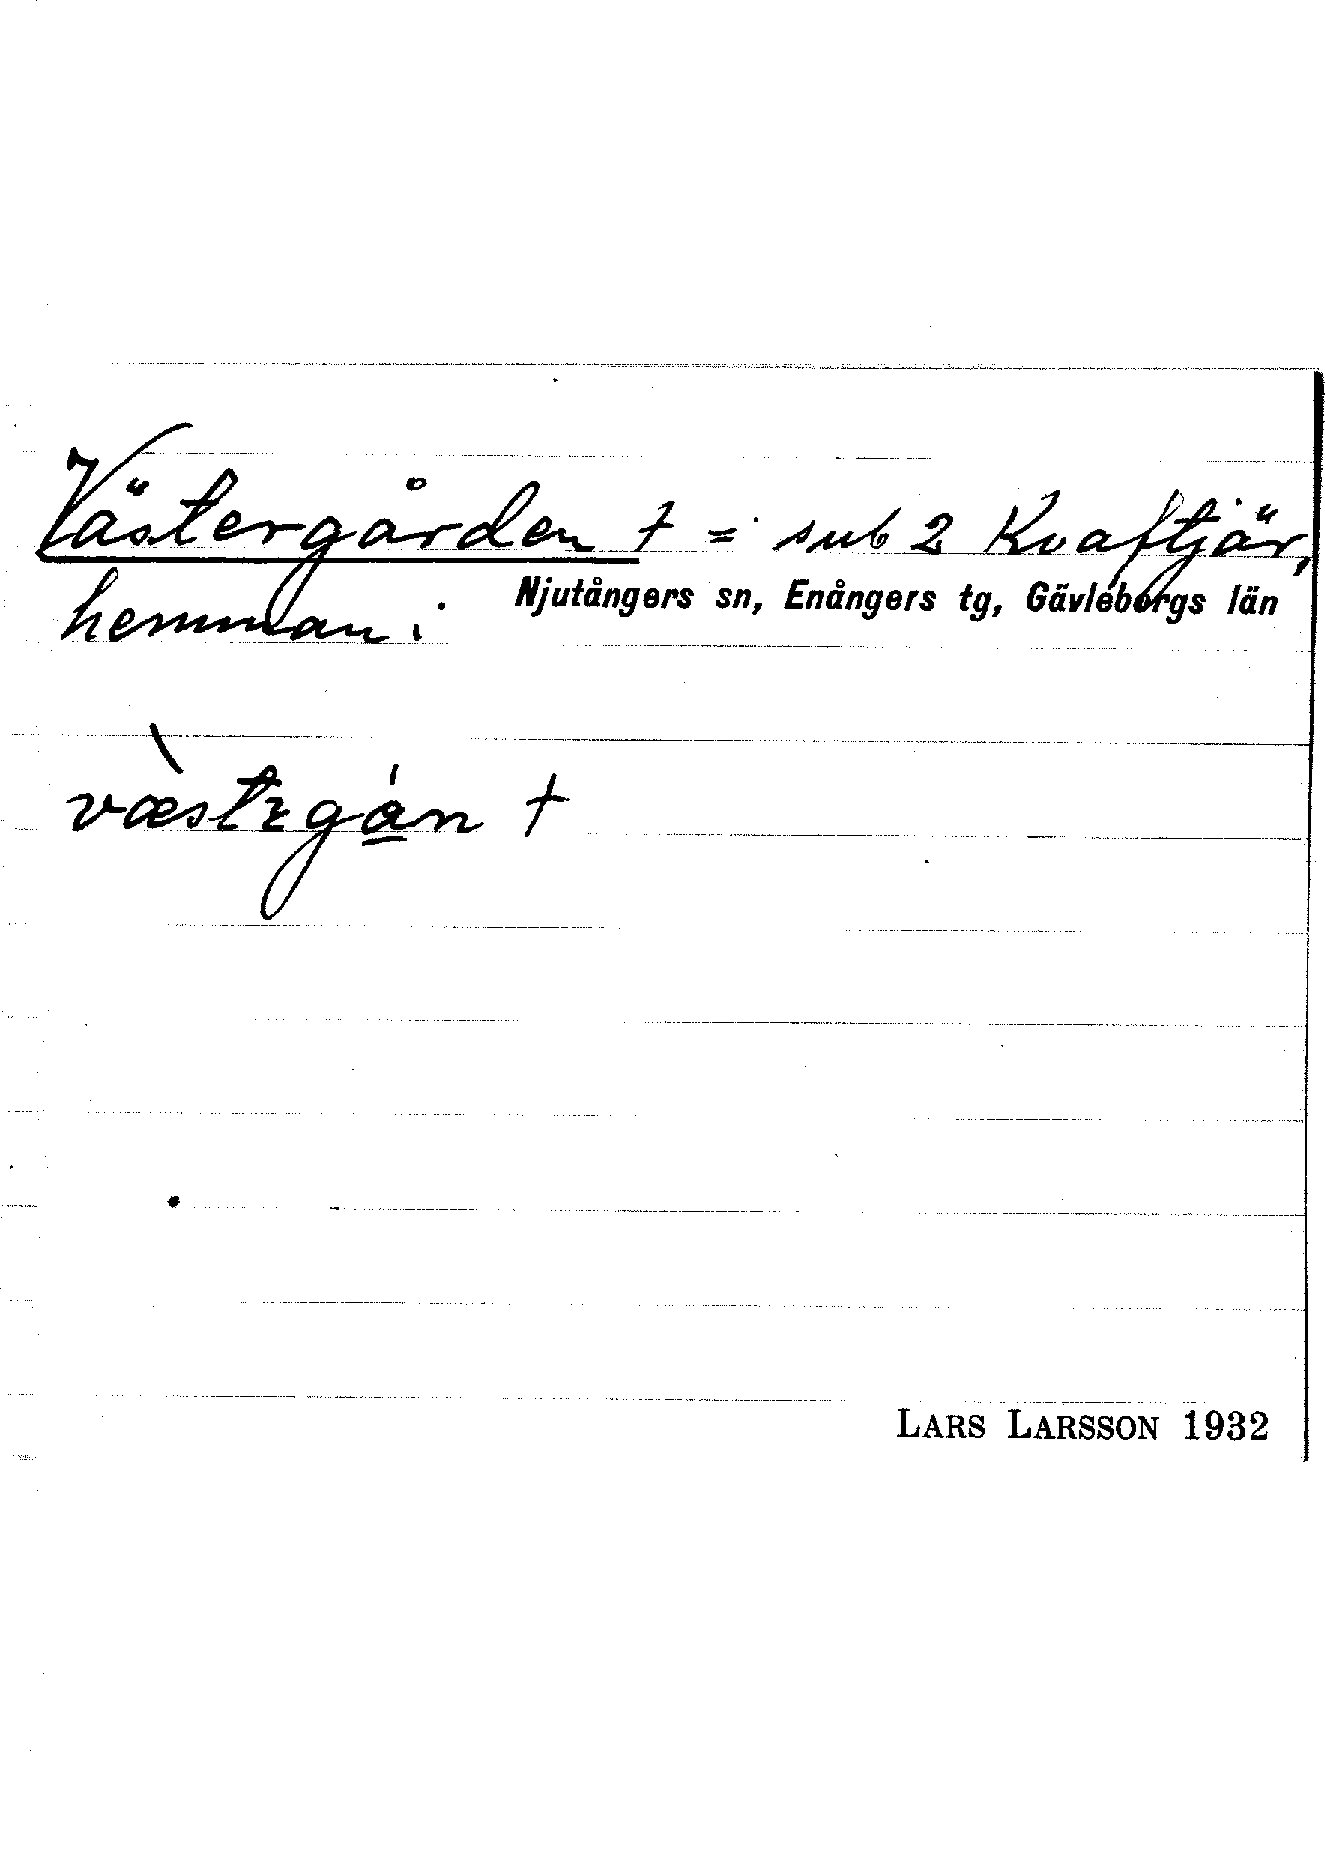 Västergården † = sub 2 Kvaftjär,
hemman.
Njutångers sn, Enångers tg, Gävleborgs län
væ̀strgά̠n †
LARS LARSSON 1932